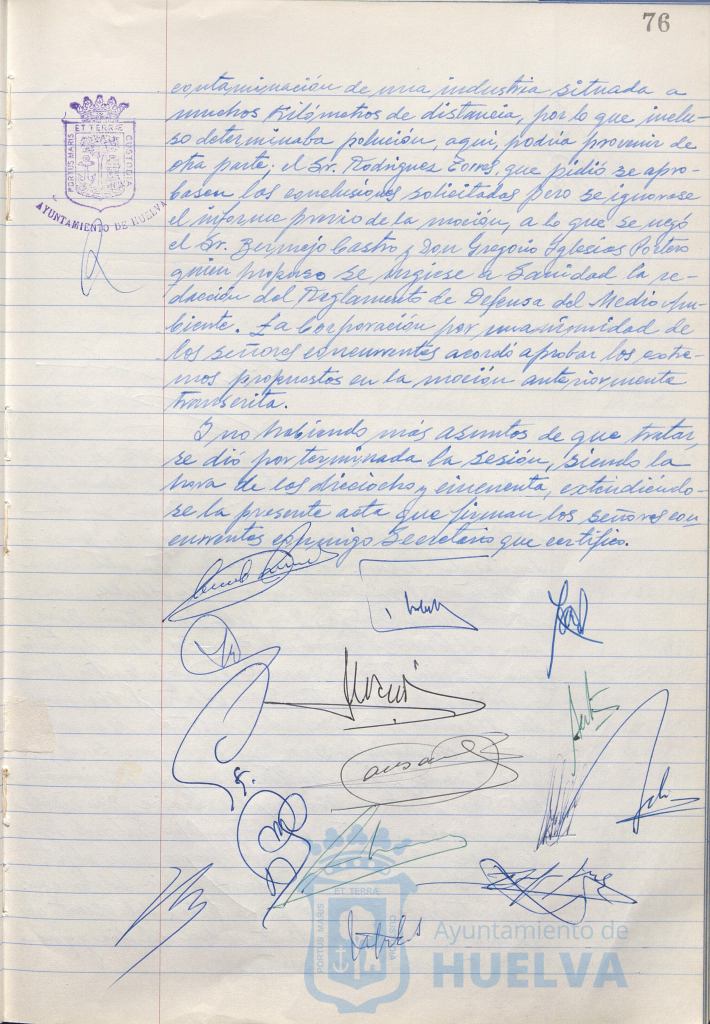 76
ET TERRÆ
PORTUS MARIS
CUSTODIA
AYUNTAMIENTO DE HUELVA
contaminación de una industria situada a
muchos Kilómetros de distancia, por lo que inclu-
so determinaba polución, aqui, podría provenir de
otra parte; el Sr. Rodriguez Torres, que pidió se apro-
basen las conclusiones solicitadas pero se ignorase
el informe previo de la moción, a lo que se negó
el Sr. Bermejo Castro y Don Gregorio Iglesias Portero
quien propuso se urgiese a Sanidad la re-
dacción del Reglamento de Defensa del Medio Am-
biente. La Corporación por unanimidad de
los señores concurrentes acordó aprobar los extre-
mos propuestos en la moción anteriormente
transcrita.
Y no habiendo más asuntos de que tratar,
se dió por terminada la sesión, siendo la
hora de las dieciocho y cincuenta, extendiéndo-
se la presente acta que firman los señores con-
currentes conmigo Secretario que certifico.
ET TERRÆ
PORTUS MARIS
CUSTODIA
Ayuntamiento de
HUELVA